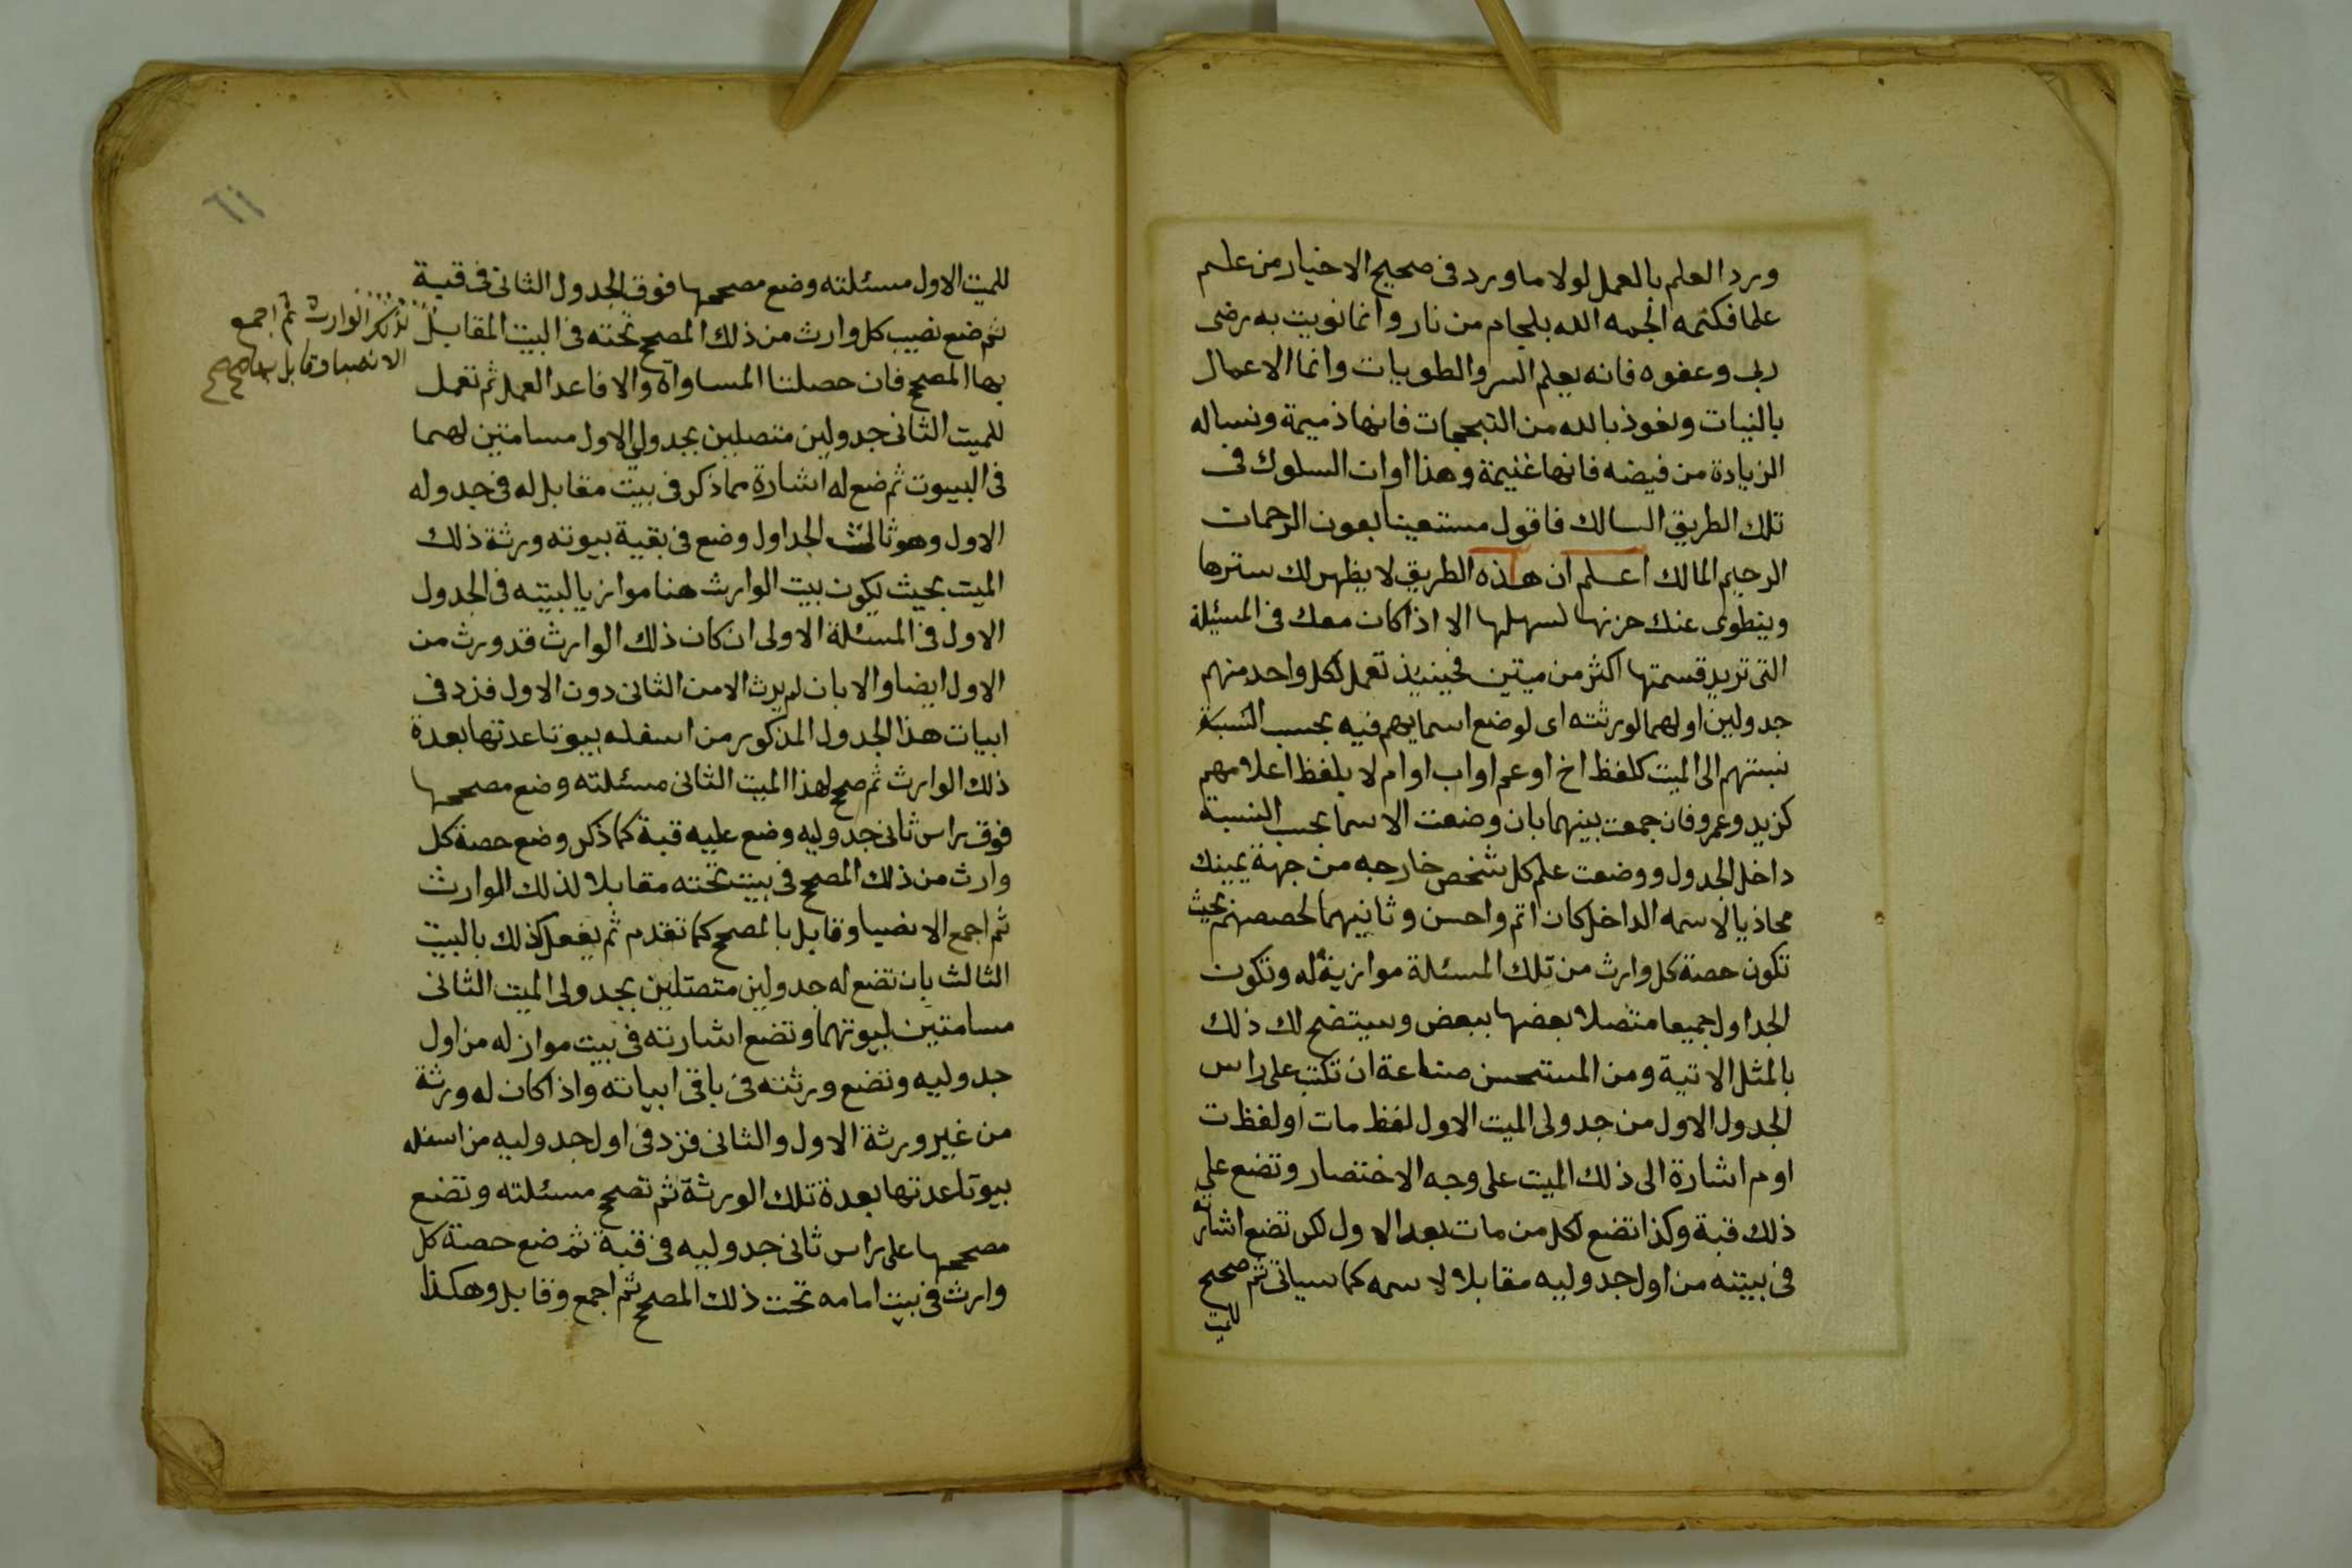 ورد العلم بالعمل لولا ما ورد فى صحيح الاخبار من علم
علما فكتمه الجمه الله بلجام من نار وانما نويت به رضى
ربى وعفوه فانه يعلم السر والطويات وانما الاعمال
بالنيات ونعوذ بالله من التبجحات فانها ذميمة ونساله
الزيادة من فيضه فانها غنيمة وهذا اوان السلوك فى
تلك الطريق السالك فاقول مستعينا بعون الرحمان
الرحيم المالك اعلم ان هذه الطريق لا يظهر لك سترها
وينطوى عنك حزنها لسهلها الا اذا كان معك فى المسئلة
التى تريد قسمتها اكثر من ميتين فحينيذ تعمل لكل واحد منهم
جدولين اولهما لورثته اى لوضع اسمايهم فيه بحسب النسبة
نسبتهم الى الميت كلفظ اخ او عم او اب او ام لا بلفظ اعلامهم
كزيد وعمرو فان جمعت بينهما بان وضعت الاسما بحسب النسبة
داخل الجدول ووضعت علم كل شخص خارجه من جهة يمينك
محاذيا لاسمه الداخل كان اتم واحسن وثانيهما لحصصهم بحيث
تكون حصة كل وارث من تلك المسئلة موازية له وتكون
الجداول جميعا متصلا بعضها ببعض وسيتضح لك ذلك
بالمثل الاتية ومن المستحسن صناعة ان تكتب على راس
الجدول الاول من جدولى الميت الاول لفظ مات او لفظ ت
او م اشارة الى ذلك الميت على وجه الاختصار وتضع على
ذلك قبة وكذا تضع لكل من مات بعد الاول لكن تضع اشارته
فى بيته من اول جدوليه مقابلا لاسمه كما سياتى ثم صحح
للميت
٦١
للميت الاول مسئلته وضع مصححها فوق الجدول الثانى فى قبة
ثم ضع نصيب كل وارث من ذلك المصحح تحته فى البيت المقابل
لذلك الوارث ثم اجمع
الانصبا وقابل بها صح صح
بها المصحح فان حصلنا المساواة والا فاعد العمل ثم تعمل
للميت الثانى جدولين متصلين بجدولى الاول مسامتين لهما
فى البيوت ثم ضع له اشارة مما ذكر فى بيت مقابل له فى جدوله
الاول وهو ثالث الجداول وضع فى بقية بيوته ورثة ذلك
الميت بحيث يكون بيت الوارث هنا موازيا لبيته فى الجدول
الاول فى المسئلة الاولى ان كان ذلك الوارث قد ورث من
الاول ايضا والا بان لم يرث الا من الثانى دون الاول فزد فى
ابيات هذا الجدول المذكور من اسفله بيوتا عدتها بعدة
ذلك الوارث ثم صحح لهذا الميت الثانى مسئلته وضع مصححها
فوق راس ثانى جدوليه وضع عليه قبة كما ذكر وضع حصة كل
وارث من ذلك المصحح فى بيت تحته مقابلا لذلك الوارث
ثم اجمع الانصبا وقابل بالمصحح كما تقدم ثم يفعل كذلك بالبيت
الثالث بان تضع له جدولين متصتلين بجدولى الميت الثانى
مسامتين لبيوتهما وتضع اشارته فى بيت مواز له من اول
جدوليه وتضع ورثته فى باقى ابياته واذا كان له ورثة
من غير ورثة الاول والثانى فزد فى اول جدوليه من اسفله
بيوتا عدتها بعدة تلك الورثة ثم تصحح مسئلته وتضع
مصححها على راس ثانى جدوليه فى قبة ثم ضع حصة كل
وارث فى بيت امامه تحت ذلك المصحح ثم اجمع وقابل وهكذا